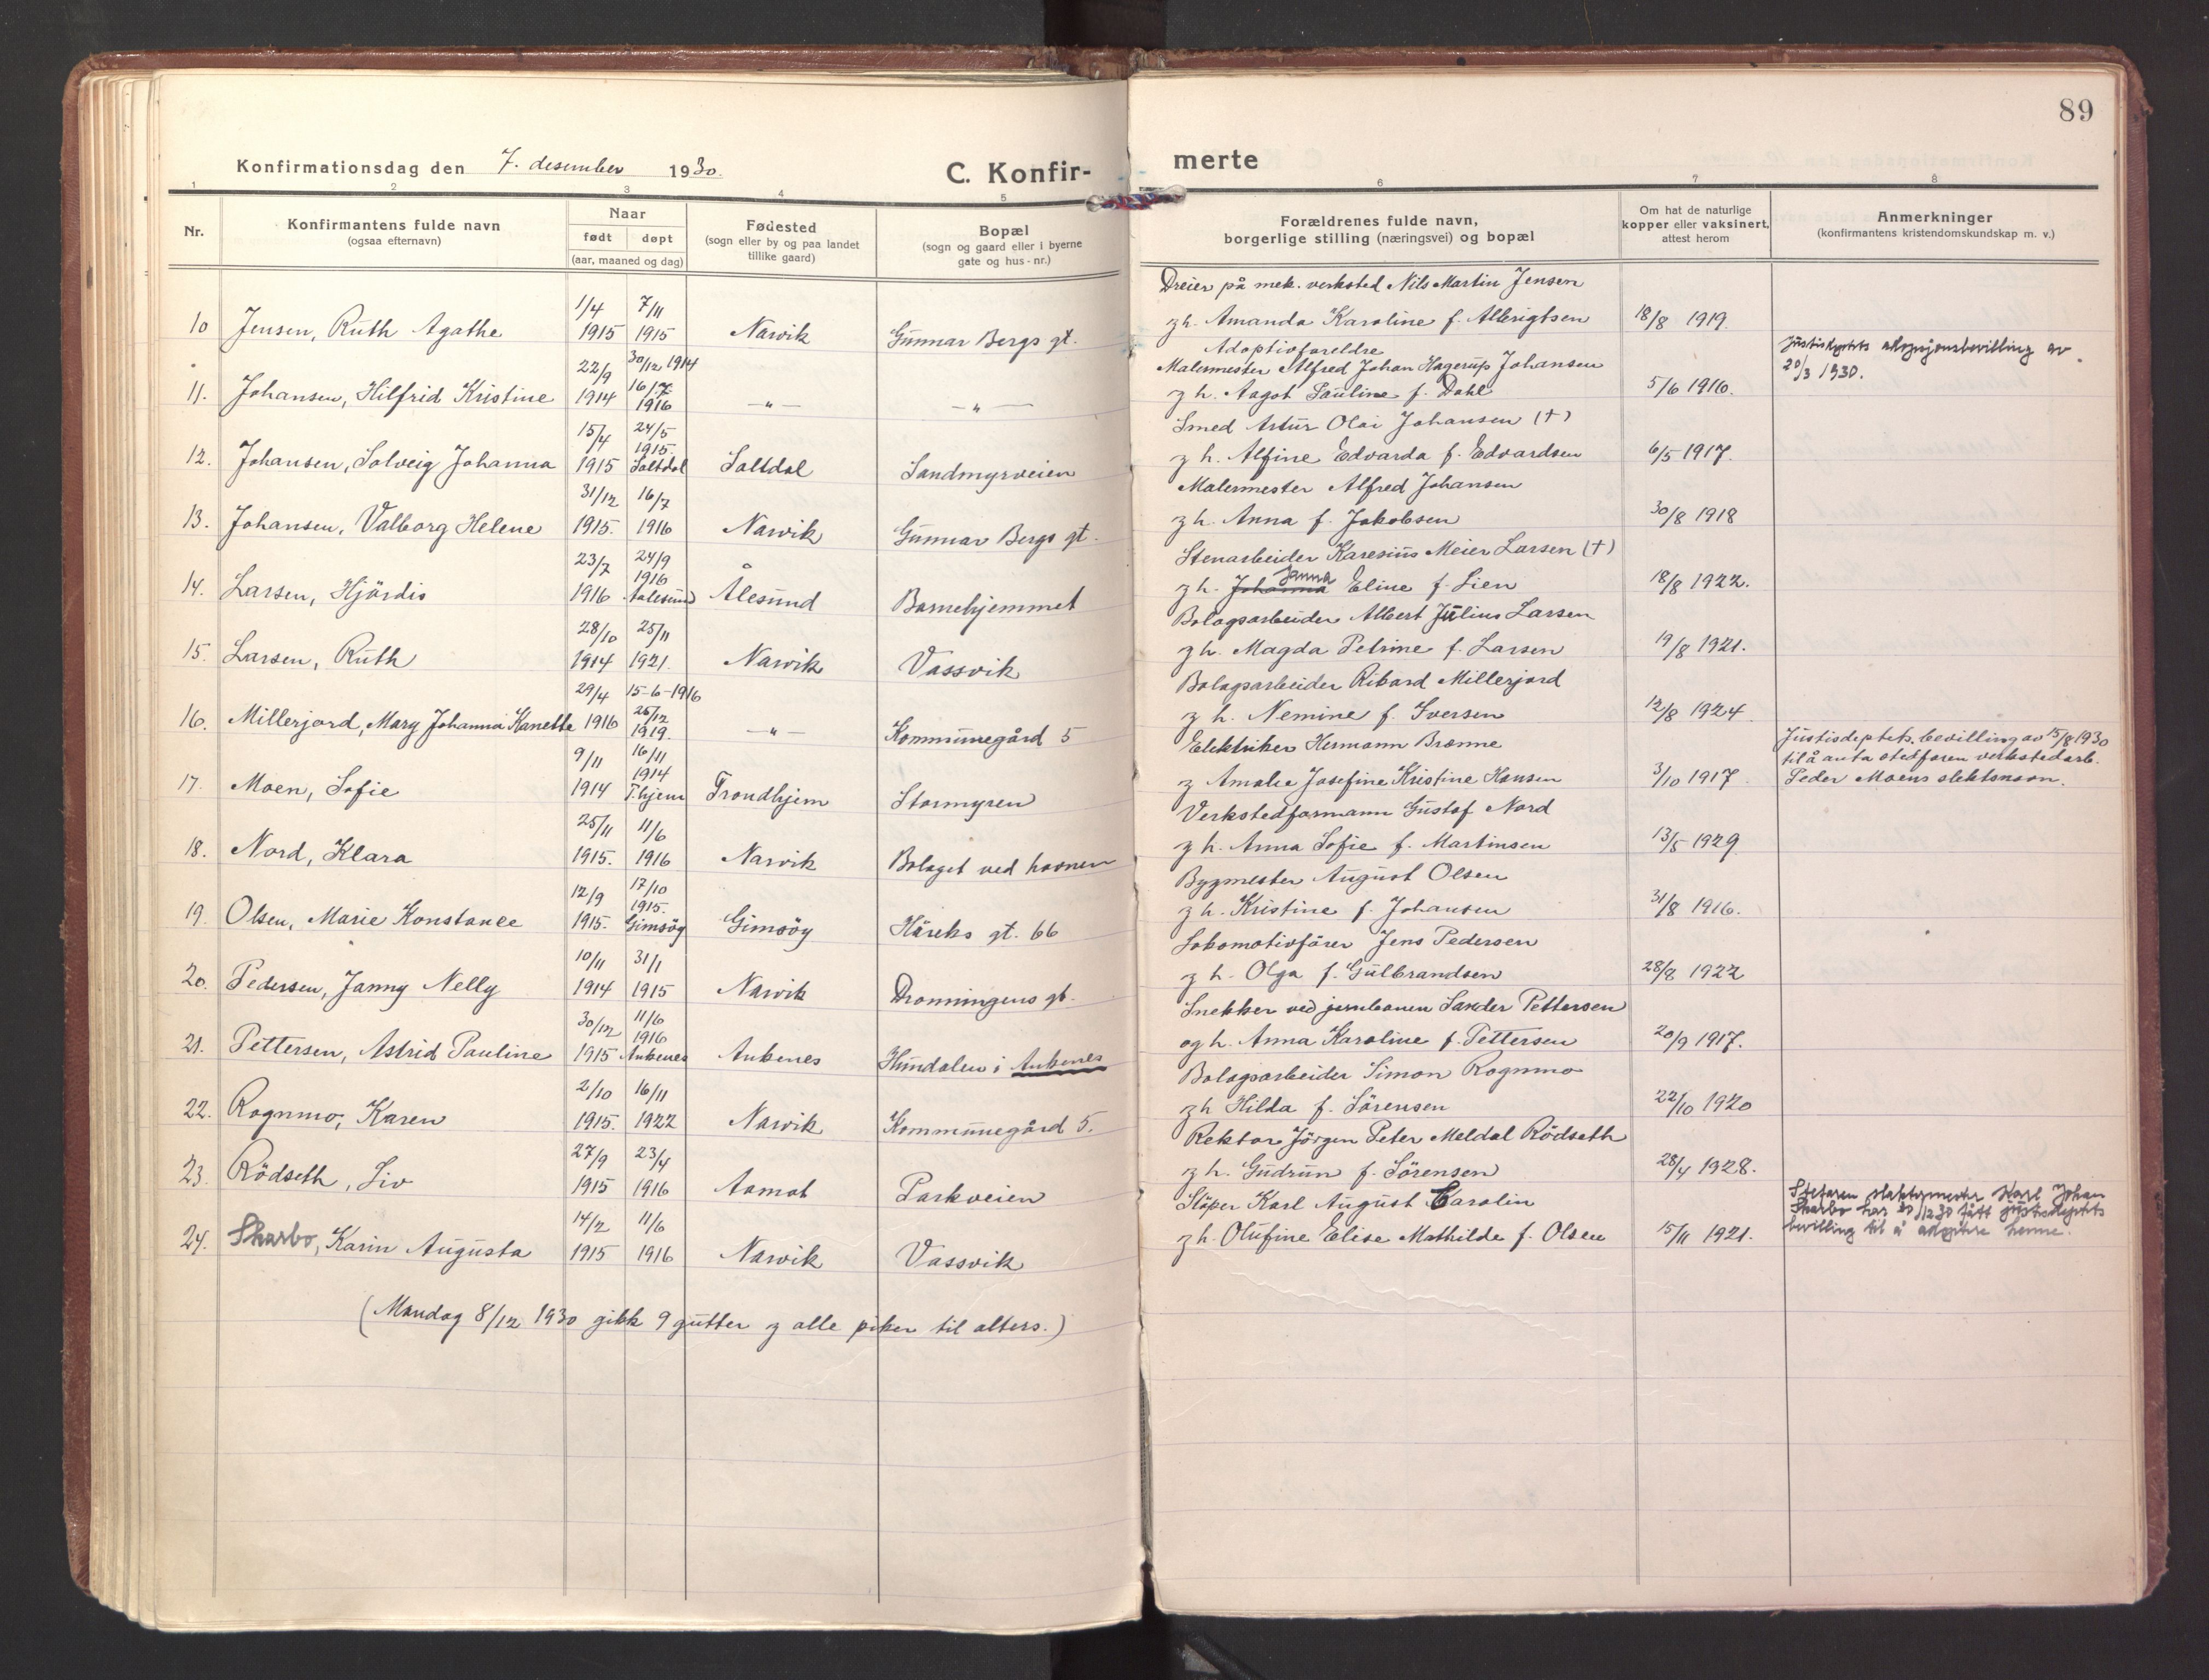 89
Konfirmationsdag den 7. desember 1930.
C. Konfir-
merte
1 2 3 4 5 6 7 8
Nr.
Konfirmantens fulde navn
(ogsaa efternavn)
Naar
født døpt
(aar, maaned og dag)
Fødested
(sogn eller by og paa landet
tillike gaard)
Bopæl
(sogn og gaard eller i byerne
gate og hus-nr.)
Forældrenes fulde navn,
borgerlige stilling (næringsvei) og bopæl
Om hat de naturlige
kopper eller vaksinert,
attest herom
Anmerkninger
(konfirmantens kristendomskundskap m. v.)
Dreier på mek. verksted Nils Martin Jensen
1/4 7/11
10 Jensen, Ruth Agathe 1915 1915 Narvik Gunnar Bergs gt. g h. Amanda Karoline f. Albrigtsen 18/8 1919.
Adoptivforeldre
22/9 30/12 1914 Malermester Alfred Johan Hagerup Johansen Justisdeptets adopsjonsbevilling av
16/7
20/3 1930.
11. Johansen, Hilfrid Kristine 1914 1916 —"— —"— g h. Aagot Pauline f. Dahl 5/6 1916.
15/4 24/5 Smed Artur Olai Johansen (+)
1915.
12. Johansen, Solveig Johanna 1915 Saltdal Saltdal Sandmyrveien g h. Alfine Edvarda f. Edvardsen 6/5 1917.
31/12 16/7 Malermester Alfred Johansen
13. Johansen, Valborg Helene 1915. 1916 Narvik Gunnar Bergs gt. g h. Anna f. Jakobsen 30/8 1918
23/7 24/9 Stenarbeider Karesius Meier Larsen (+)
1916 Janna
14. Larsen, Hjördis 1916 Aalesund Ålesund Barnehjemmet g h. Johanna Eline f. Lien 18/8 1922.
28/10 25/11 Bolagsarbeider Albert Julius Larsen
15. Larsen, Ruth 1914 1921. Narvik Vassvik g h. Magda Petrine f. Larsen 19/8 1921.
29/4 15-6-1916 Bolagsarbeider Rikard Millerjord
26/12
16. Millerjord, Mary Johanna Kanelle 1916 1919. —"— Kommunegård 5 g h. Nemine f. Iversen 12/8 1924
9/11 16/11 Elektriker Hermann Brænne Justisdeptets. bevilling av 15/8 1930
1914 til å anta stedfaren verkstedarb.
17. Moen, Sofie 1914 T.hjem Trondhjem Stormyren g Amalie Josefine Kristine Hansen 3/10 1917 Peder Moens slektsnavn.
25/11 11/6 Verkstedformann Gustaf Nord
18. Nord, Klara 1915. 1916 Narvik Bolaget ved havnen g h. Anna Sofie f. Martinsen 13/5 1929
12/9 17/10 Bygmester August Olsen
1915.
19. Olsen, Marie Konstance 1915. Gimsöy Gimsöy Håreks gt. 66 g h. Kristine f. Johansen 31/8 1916.
10/11 31/1 Lokomotivfører Jens Pedersen
20. Pedersen, Janny Nelly 1914 1915 Narvik Dronningens gt. g h. Olga f. Gulbrandsen 28/8 1922
30/12 11/6 Snekker ved jernbanen Sander Pettersen
1916
21. Pettersen, Astrid Pauline 1915 Ankenes Ankenes Hundalen i Ankenes og h. Anna Karoline f. Pettersen 20/9 1917.
2/10 16/11 Bolagsarbeider Simon Rognmo
22. Rognmo, Karen 1915. 1922 Narvik Kommunegård 5. g h Hilda f. Sörensen 22/10 1920
27/9 23/4 Rektor Jörgen Peter Meldal Rödseth
23. Rödseth, Liv 1915 1916 Aamot Parkveien g h. Gudrun f. Sörensen 28/4 1928.
14/2 11/6 Stöper Karl August Carolin Stefaren slaktermester Karl Johan
Skarbo har 20/12 30 fått justisdeptets
24. Skarbo, Karin Augusta 1915 1916 Narvik Vassvik g h. Olufine Elise Mathilde f. Olsen 15/11 1921. bevilling til å adoptere henne.
(Mandag 8/12 1930 gikk 9 gutter g alle piker til alters.)